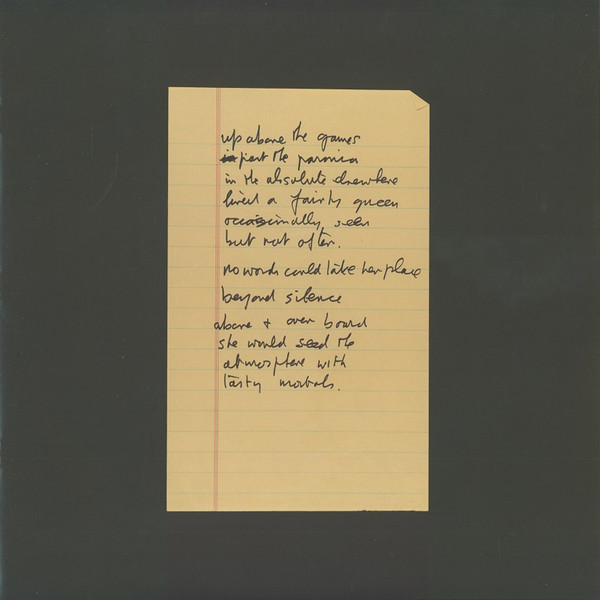 up above the games
past the paronia
in the absolute elsewhere
lived a fairly queen
occasionally seen
but not often.
no words could take her place
beyond silence
above + over board
she would seed the
atmosphere with
tasty morsels.